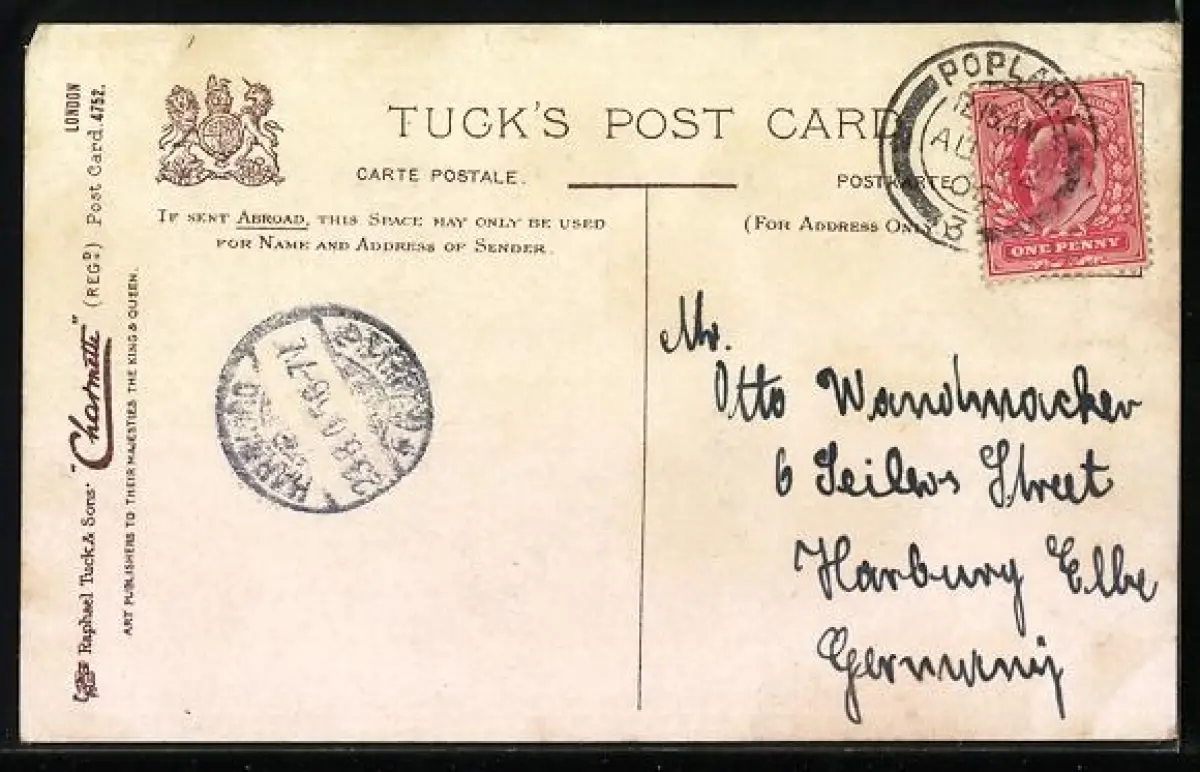 TUCK'S POST CARD
CARTE POSTALE.
POSTKARTE
IF SENT ABROAD, THIS SPACE MAY ONLY BE USED
FOR NAME AND ADDRESS OF SENDER.
(FOR ADDRESS ONLY
POPLAR.
12.15AM
AU
B
ONE PENNY
Mr.
Otto Wandmacker
6 Street
Harburg Elbe
Germany
HARBURG
23.8.0
Raphael Tuck & Sons' "Charmette" (REGD) Post Card. 4752.
LONDON
ART PUBLISHERS TO THEIR MAJESTIES THE KING & QUEEN.